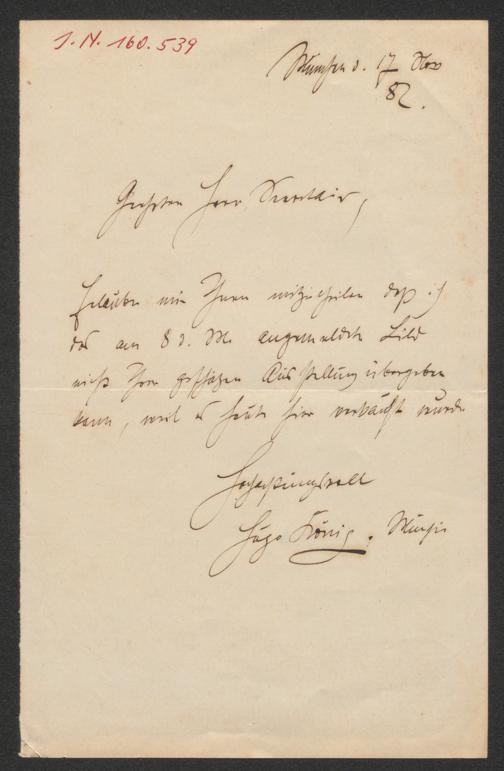 J. N. 160.539
München d. 17 Nov
82.
Geehrter Herr Secretair,
Erlaube mir Ihnen mitzutheilen daß ich
das am 8 d. M. angemeldete Bild
nicht Ihrer geschätzten Ausstellung übergeben
kann, weil es heute hier verkauft wurde
Hochachtungsvoll
Hugo König, München